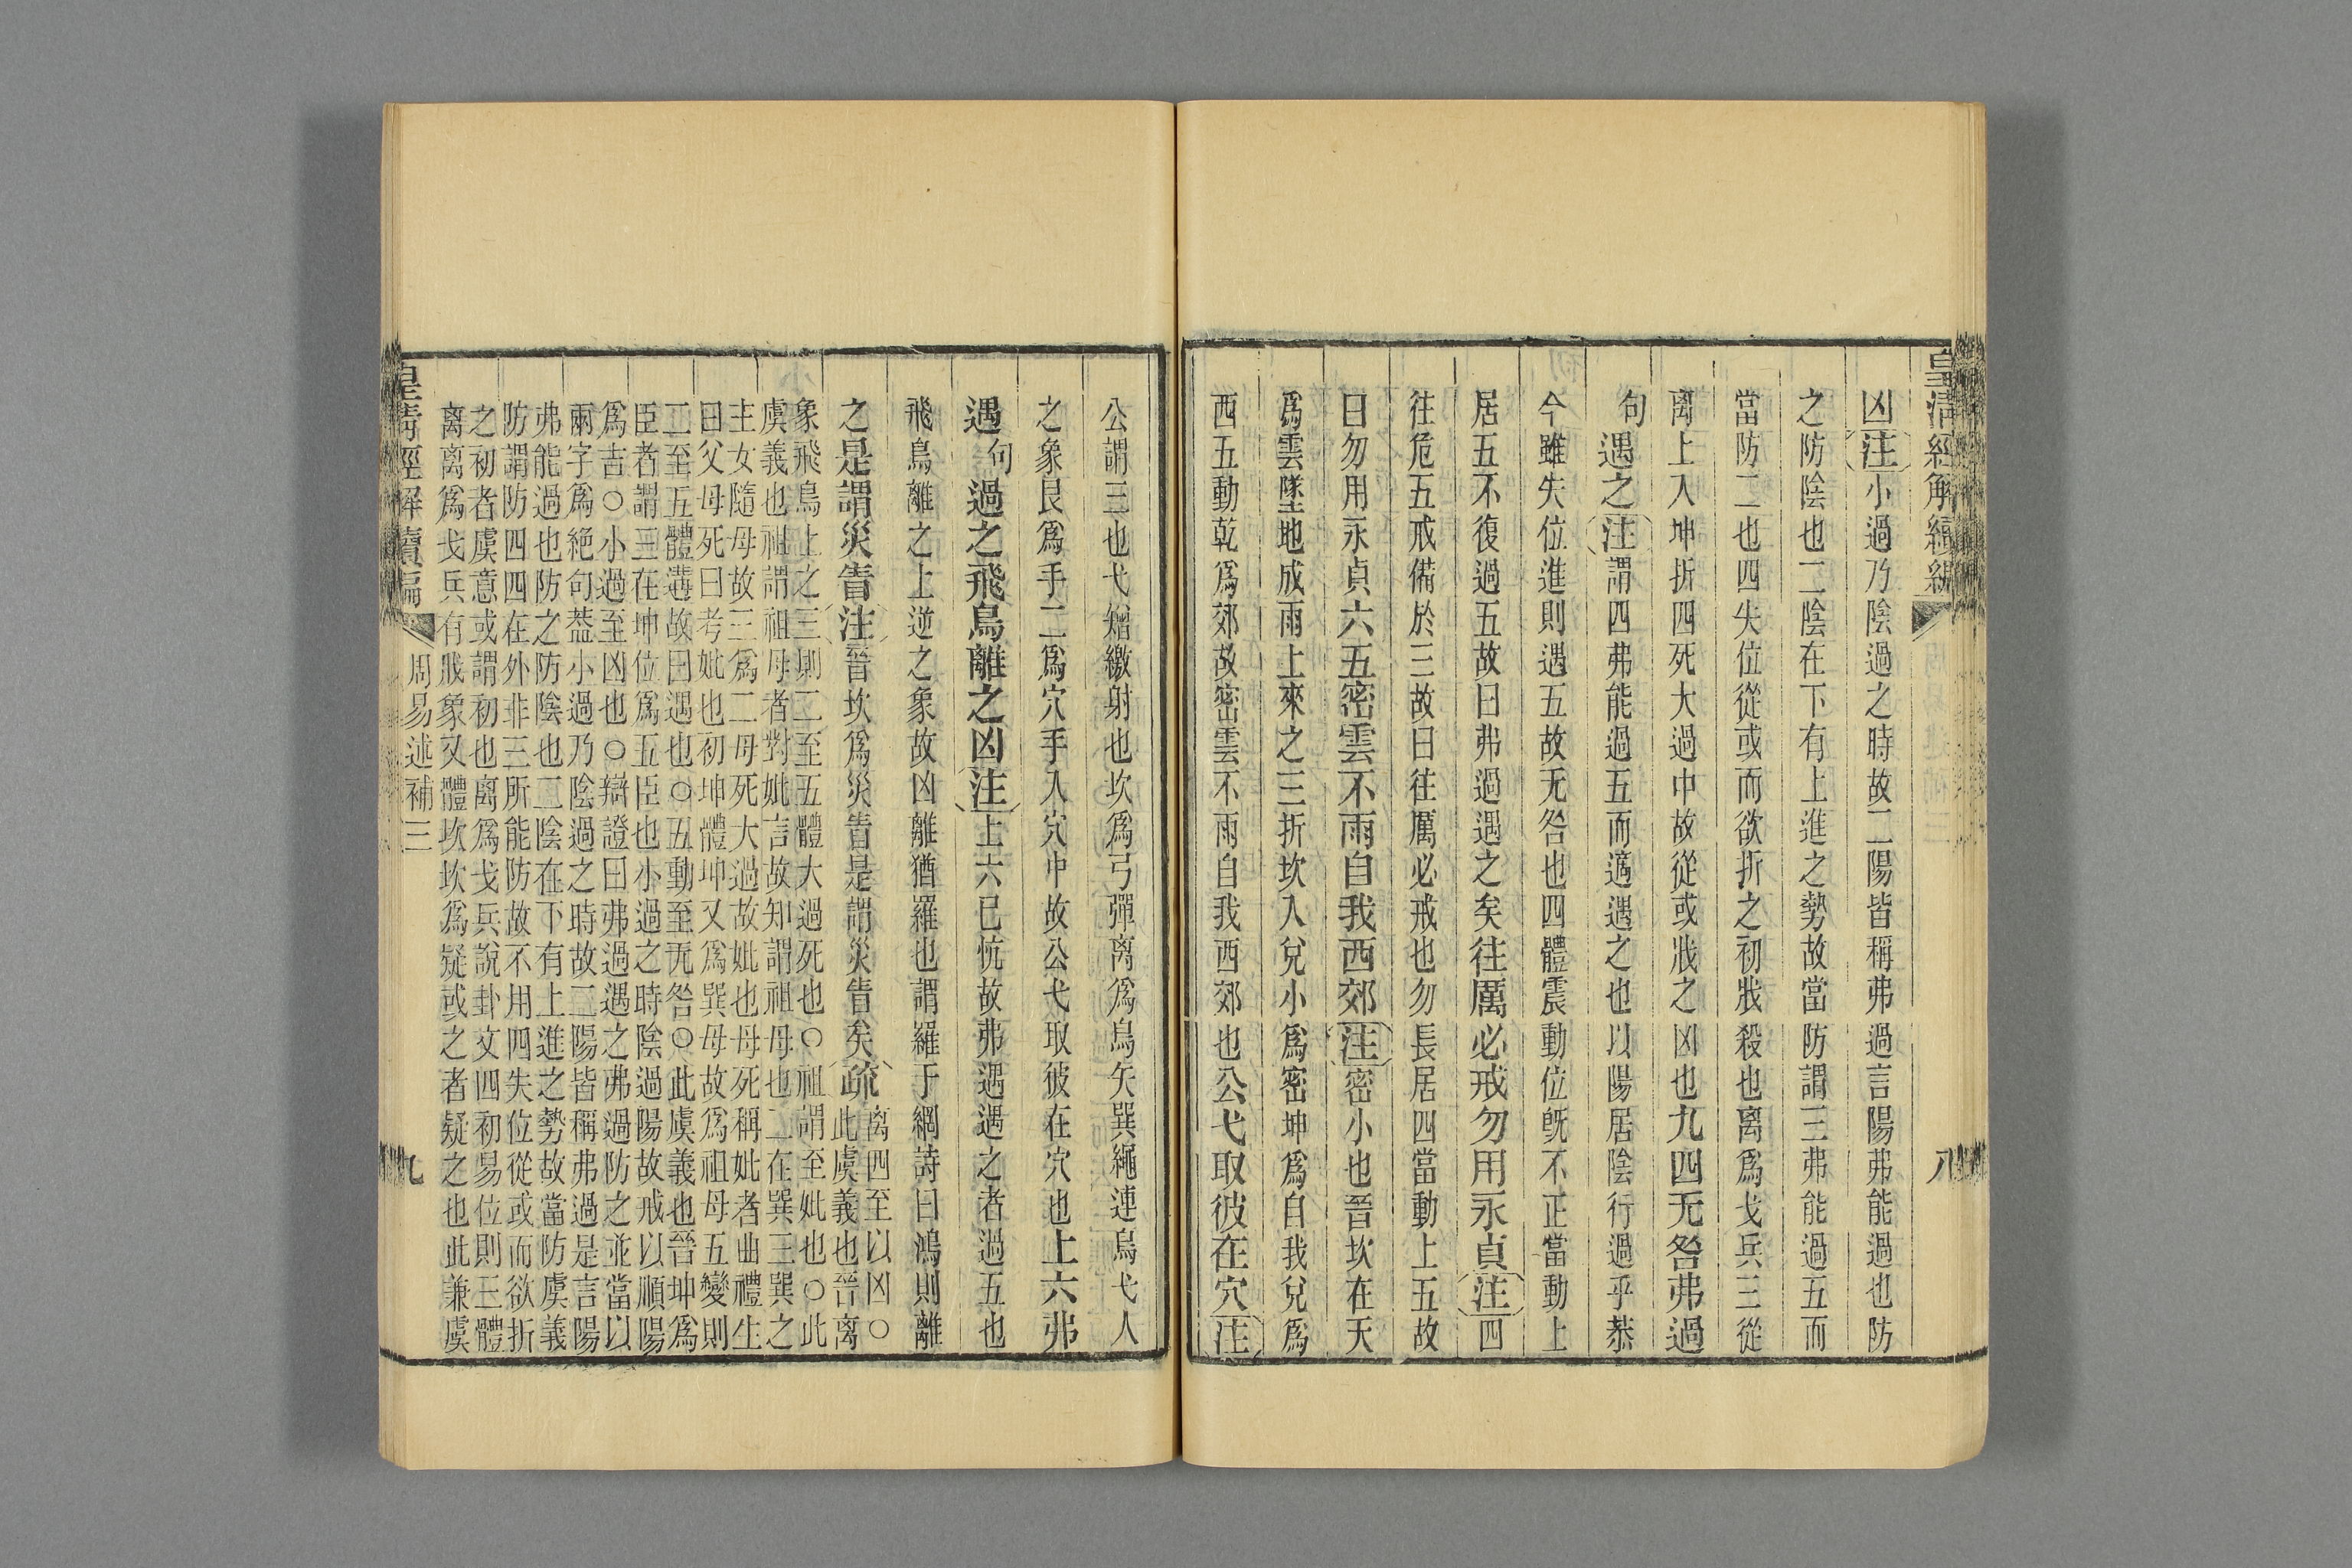 皇清經解續編
八
凶注小過乃陰過之時故二陽皆稱弗過言陽弗能過也防
之防陰也二陰在下有上進之勢故當防謂三弗能過五而
當防二也四失位從或而欲折之初戕殺也离爲戈兵三從
离上入坤折四死大過中故從或戕之凶也九四无咎弗過
句遇之注謂四弗能過五而適遇之也以陽居陰行過乎恭
今雖失位進則遇五故无咎也四體震動位旣不正當動上
居五不復過五故曰弗過遇之矣往厲必戒勿用永貞注四
往危五戒備於三故曰往厲必戒也勿長居四當動上五故
曰勿用永貞六五密雲不雨自我西郊注密小也晉坎在天
爲雲墜地成雨上來之三折坎入兌小爲密坤爲自我兌爲
西五動乾爲郊故密雲不雨自我西郊也公弋取彼在穴注
公謂三也弋矰繳射也坎爲弓彈离爲鳥矢巽繩連鳥弋人
之象艮爲手二爲穴手入穴中故公弋取彼在穴也上六弗
遇句過之飛鳥離之凶注上六已忼故弗遇遇之者過五也
飛鳥離之上逆之象故凶離猶羅也謂羅于網詩曰鴻則離
之是謂災眚注晉坎爲災眚是謂災眚矣疏离四至以凶○
此虞義也晉离
象飛鳥上之三則二至五體大過死也○祖謂至妣也○此
虞義也祖謂祖母者對妣言故知謂祖母也二在巽三巽之
主女隨母故三爲二母死大過故妣也母死稱妣者曲禮生
曰父母死曰考妣也初坤體坤又爲巽母故爲祖母五變則
二至五體遘故曰遇也○五動至无咎○此虞義也晉坤爲
臣者謂三在坤位爲五臣也小過之時陰過陽故戒以順陽
爲吉○小過至凶也○辯證曰弗過遇之弗過防之並當以
兩字爲絶句葢小過乃陰過之時故二陽皆稱弗過是言陽
弗能過也防之防陰也二陰在下有上進之勢故當防虞義
防謂防四四在外非三所能防故不用四失位從或而欲折
之初者虞意或謂初也离爲戈兵說卦文四初易位則三體
离离爲戈兵有戕象又體坎坎爲疑或之者疑之也此兼虞
皇清經解續編
周易述補三
九